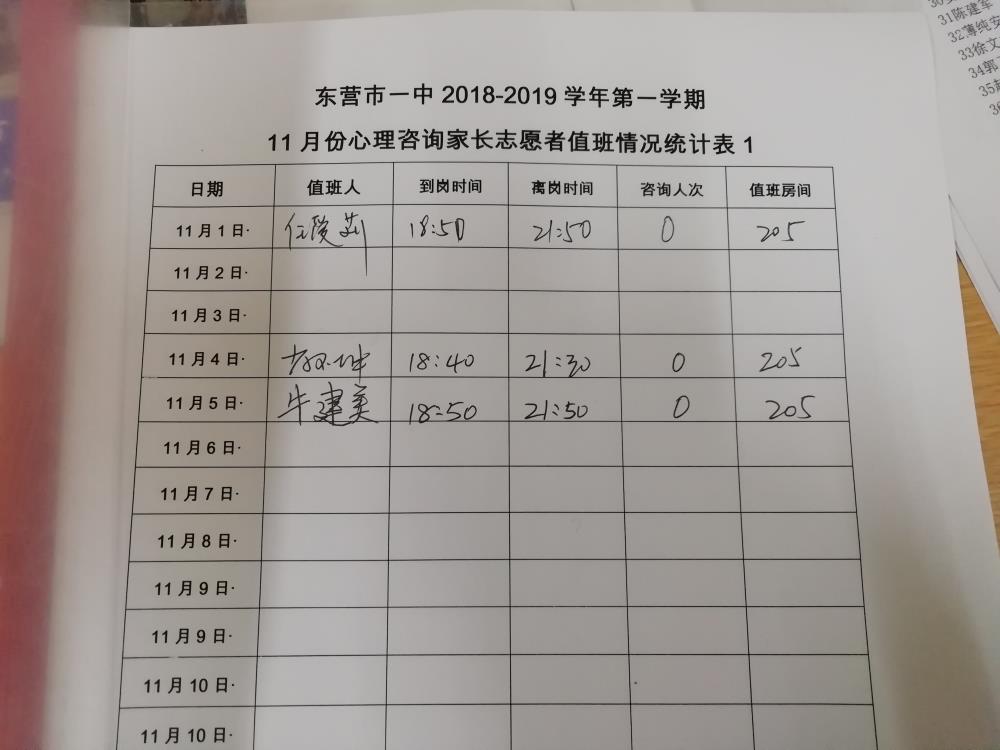 东营市一中 2018-2019 学年第一学期
11 月份心理咨询家长志愿者值班情况统计表 1
日期 值班人 到岗时间 离岗时间 咨询人次 值班房间
11 月 1 日· 18:50 21:50 0 205
11 月 2 日·
11 月 3 日·
11 月 4 日· 18:40 21:30 0 205
11 月 5 日· 牛建美 18:50 21:50 0 205
11 月 6 日·
11 月 7 日·
11 月 8 日·
11 月 9 日·
11 月 9 日·
11 月 10 日·
11 月 10 日·
31陈建军
32薄纯安
33徐文
34郭